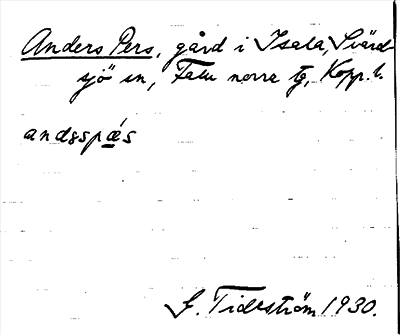 Anders Pers, gård i Isala, Svärd-
sjö sn, Falu norra tg, Kopp. l.
andsspǽs
G. Tideström 1930.